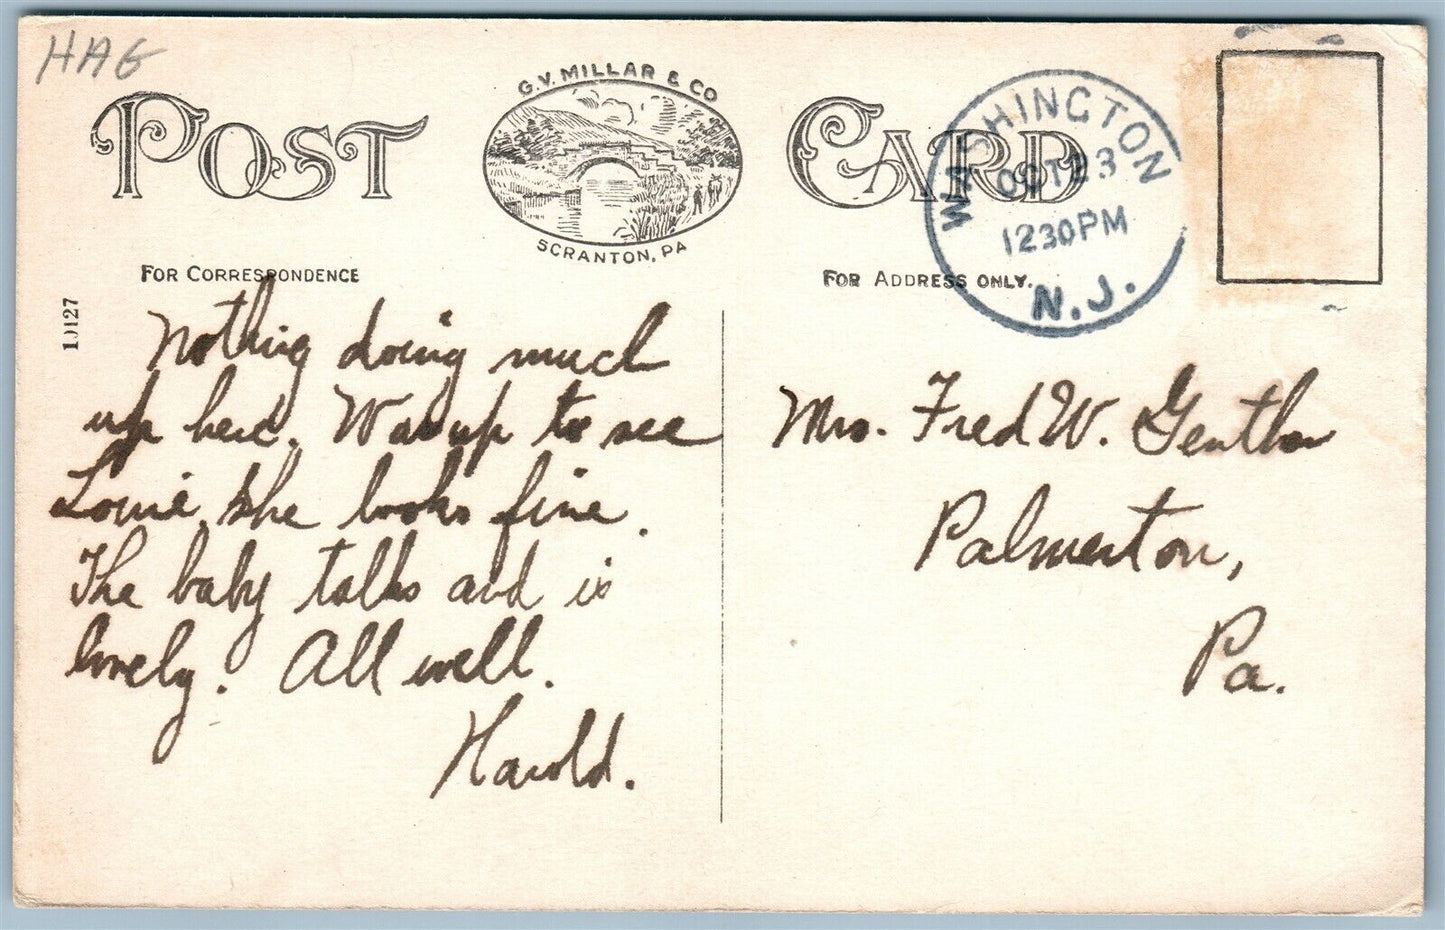 HAG
POST CARD
G.V. MILLAR & CO
SCRANTON, PA
WASHINGTON
OCT 23
1230PM
N.J.
FOR CORRESPONDENCE
FOR ADDRESS ONLY.
10127
Nothing doing much
up here. Was up to see
Louie, she looks fine.
The baby talks and is
lovely. All well.
Harold.
Mrs. Fred W. Genther
Palmerton,
Pa.